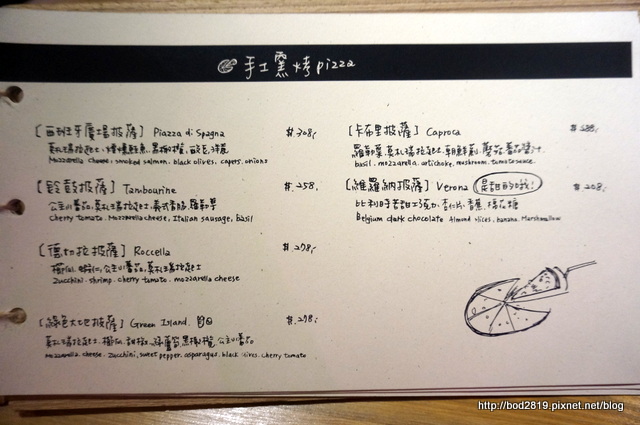 手工窯烤pizza
[西班牙廣場披薩] Piazza di Spagna $.308,
莫札瑞拉起士、煙燻鮭魚、黑橄欖、酸豆、洋蔥
Mozzarella cheese, smoked salmon, black olives, capers, onions
[鈴鼓披薩] Tambourine $.258,
公主小番茄、莫札瑞拉起士、義式香腸、羅勒葉
Cherry tomato, Mozzarella cheese, Italian sausage, basil
[德切拉披薩] Roccella $.278,
櫛瓜、蝦仁、公主小番茄、莫札瑞拉起士
Zucchini, shrimp, cherry tomato, mozzarella cheese
[綠色大地披薩] Green Island $.278,
莫札瑞拉起士、櫛瓜、甜椒、綠蘆筍、黑橄欖、公主小番茄
mozzarella, cheese, Zucchini, sweet pepper, asparagus, black olives, cherry tomato
[卡布里披薩] Caproca
羅勒葉、莫札瑞拉起士、朝鮮薊、蘑菇、番茄醬汁
basil, mozzarella, artichoke, mushroom, tomato sauce
[維羅納披薩] Verona 是甜的哦! $.208,
比利時苦甜巧克力、杏仁片、香蕉、棉花糖
Belgium dark chocolate Almond slices, banana, Marshmallow
http://bod2819.pixnet.net/blog